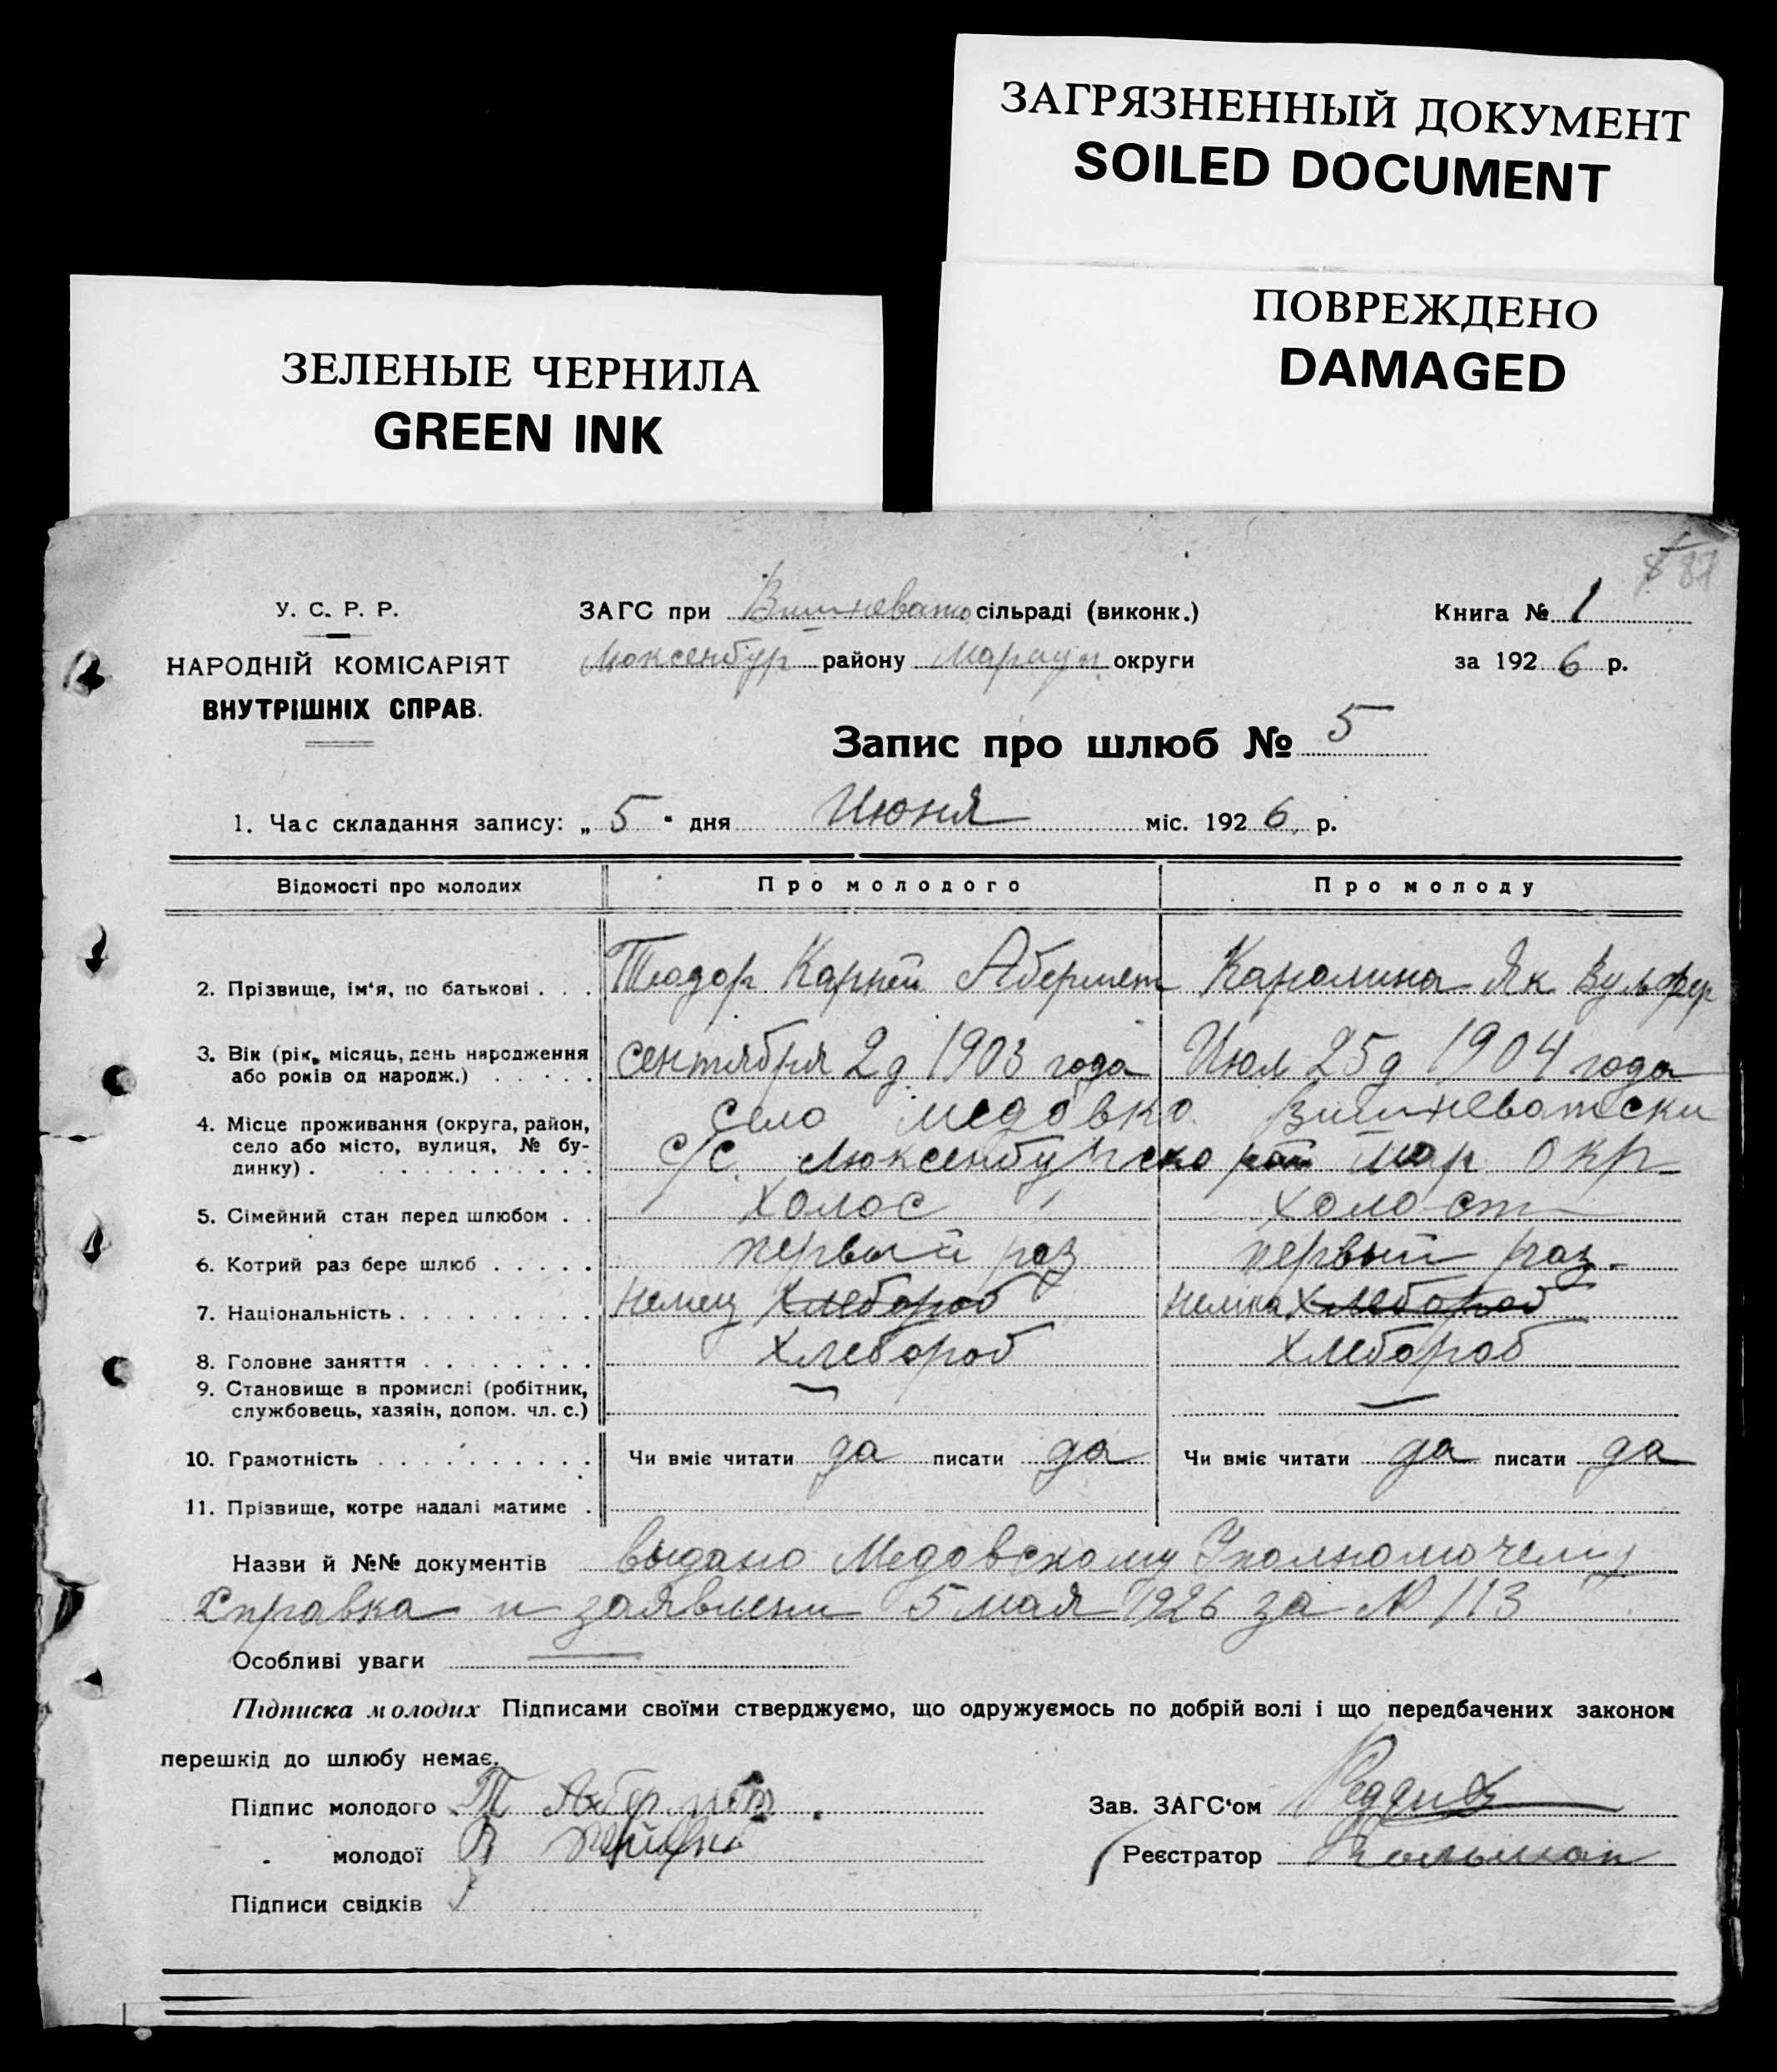 ЗАГРЯЗНЕННЫЙ ДОКУМЕНТ
SOILED DOCUMENT
ПОВРЕЖДЕНО
DAMAGED
ЗЕЛЕНЫЕ ЧЕРНИЛА
GREEN INK
87
У. С. Р. Р.
НАРОДНІЙ КОМІСАРІЯТ
ВНУТРІШНІХ СПРАВ.
ЗАГС при Вишневато сільраді (виконк.)
Люксенбур району Мариуп округи
Книга № 1
за 1926 р.
Запис про шлюб № 5
1. Час складання запису: „5" дня Июня міс. 1926 р.
Відомості про молодих Про молодого Про молоду
2. Прізвище, ім'я, по батькові . . . Теодор Карней Абермет Каролина Як Вульфер
3. Вік (рік, місяць, день народження або років од народж.) . . . . . сентября 2 д. 1903 года Июл 25 д 1904 года
4. Місце проживання (округа, район, село або місто, вулиця, № будинку) . село Медовка Вишневатски
с/с. Люксенбургско рай Мар окр
5. Сімейний стан перед шлюбом . . холос холост
6. Котрий раз бере шлюб . . . . . первый раз первый раз
7. Національність . . . . . . . . . немец хлебороб немка хлебороб
8. Головне заняття . . . . . . . . хлебороб хлебороб
9. Становище в промислі (робітник, службовець, хазяін, допом. чл. с.) — —
10. Грамотність . . . . . . . . . . Чи вміє читати да писати да Чи вміє читати да писати да
11. Прізвище, котре надалі матиме .
Назви й №№ документів выдано Медовскому Уполномочему
Справка и заявлени 5 мая 1926 за № 113
Особливі уваги —
Підписка молодих Підписами своїми стверджуємо, що одружуємось по добрій волі і що передбачених законом
перешкід до шлюбу немає.
Підпис молодого Т Абермет
„ молодої
Підписи свідків
Зав. ЗАГС'ом
Реєстратор